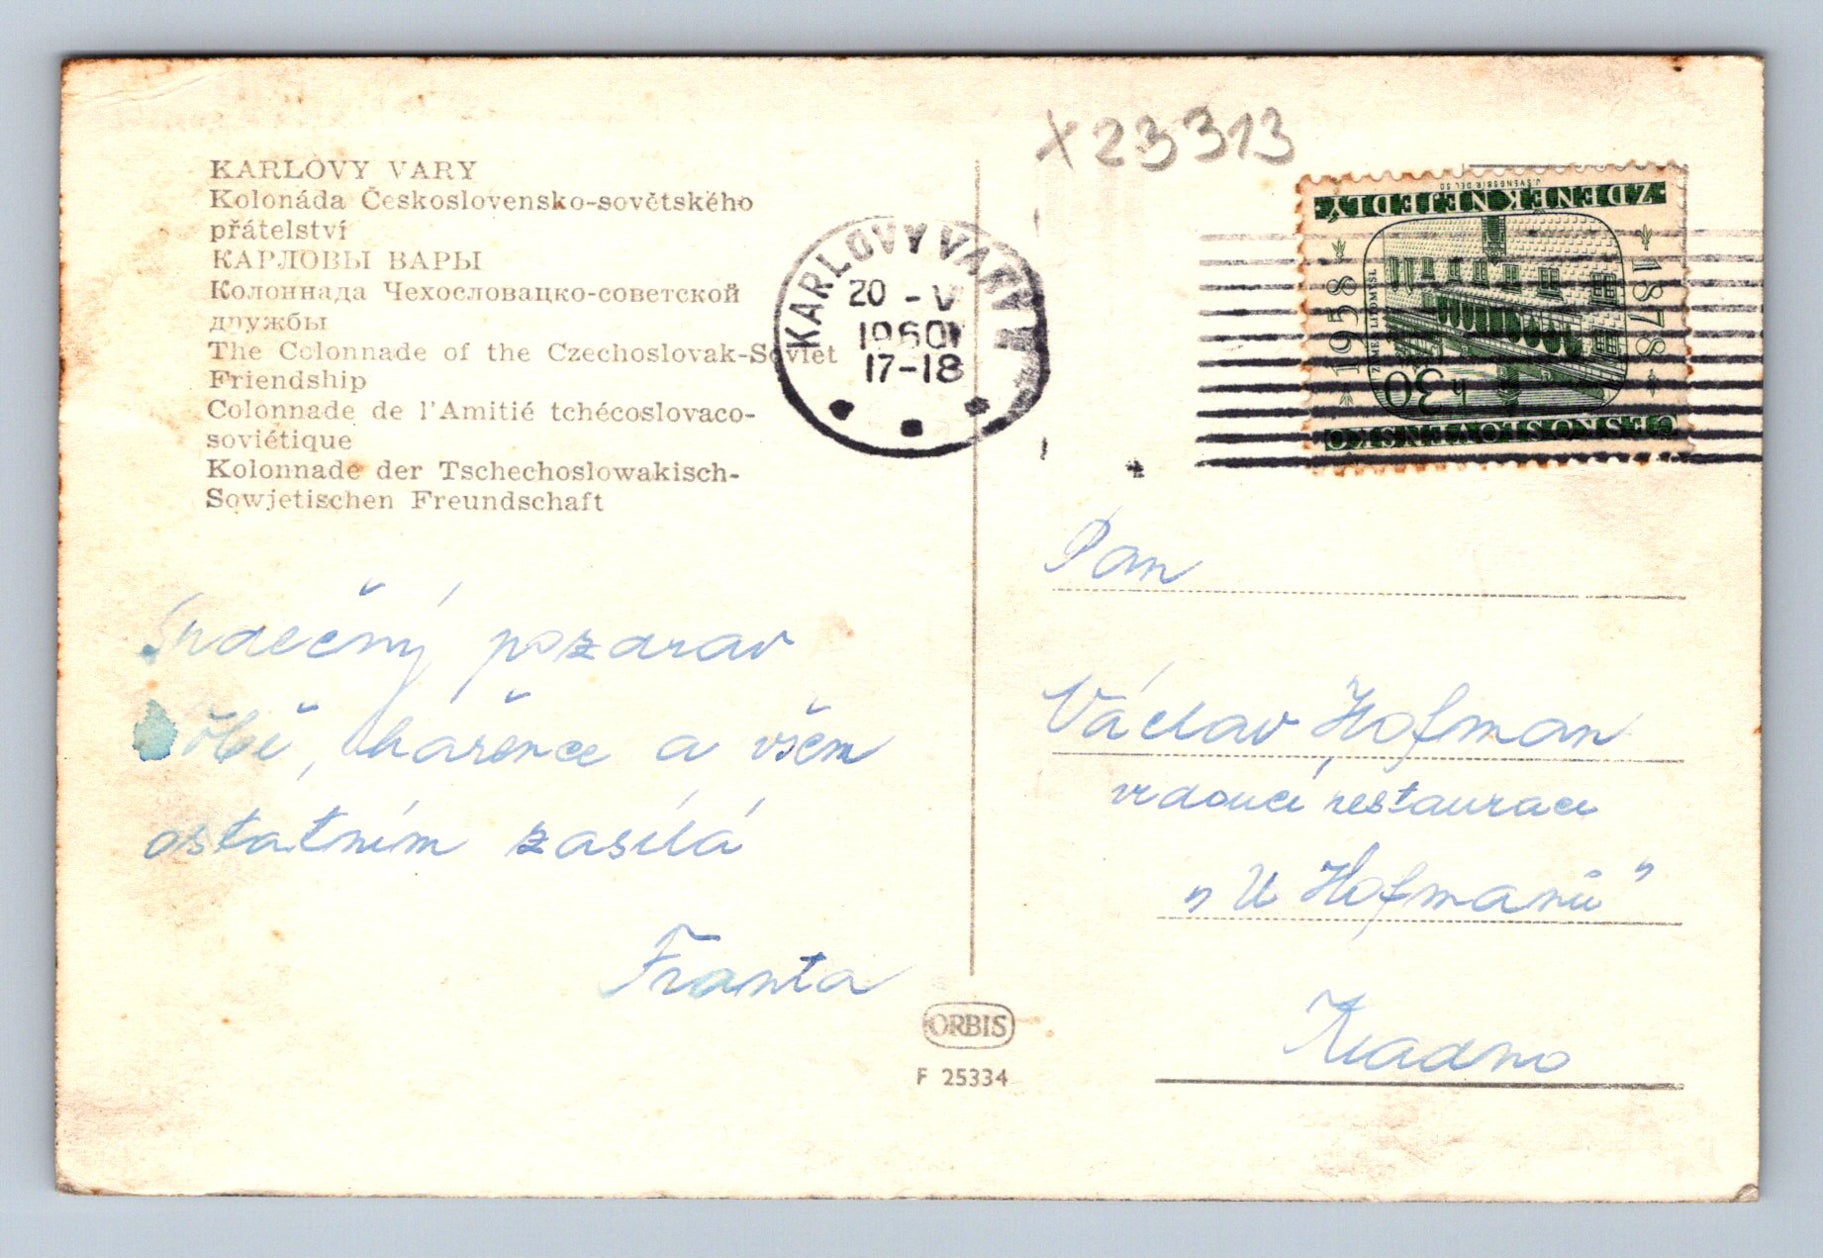 x 23313
KARLOVY VARY
Kolonáda Československo-sovětského
přátelství
КАРЛОВЫ ВАРЫ
Колоннада Чехословацко-советской
дружбы
The Colonnade of the Czechoslovak-Soviet
Friendship
Colonnade de l'Amitié tchécoslovaco-
soviétique
Kolonnade der Tschechoslowakisch-
Sowjetischen Freundschaft
KARLOVY VARY 1
20 - V
1960
17-18
ČESKOSLOVENSKO
30 h
1878
1958
ZÁMEK LITOMYŠL
ZDENEK NEJEDLÝ
J. ŠVENGSBÍR DEL.
Srdečný pozdrav
a všem
ostatním zasílá
Franta
Pan
Václav Hofman
vedoucí restaurace
„U Hofmanů"
Kladno
ORBIS
F 25334